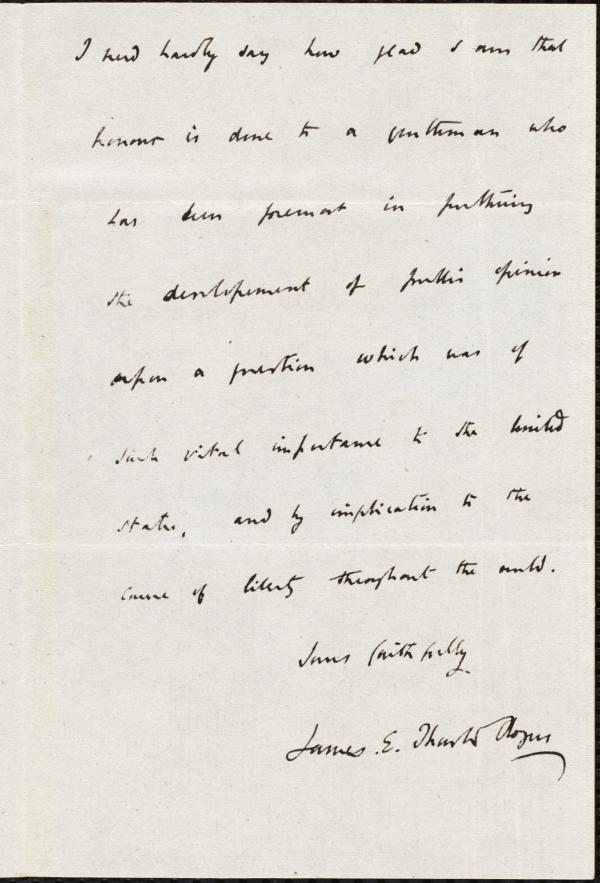 I need hardly say how glad I am that
honour is done to a gentleman who
has been foremost in furthering
the developement of public opinion
upon a question which was of
such vital importance to the United
States, and by implication to the
cause of liberty throughout the world.
Yours faithfully
James E. Thorold Rogers